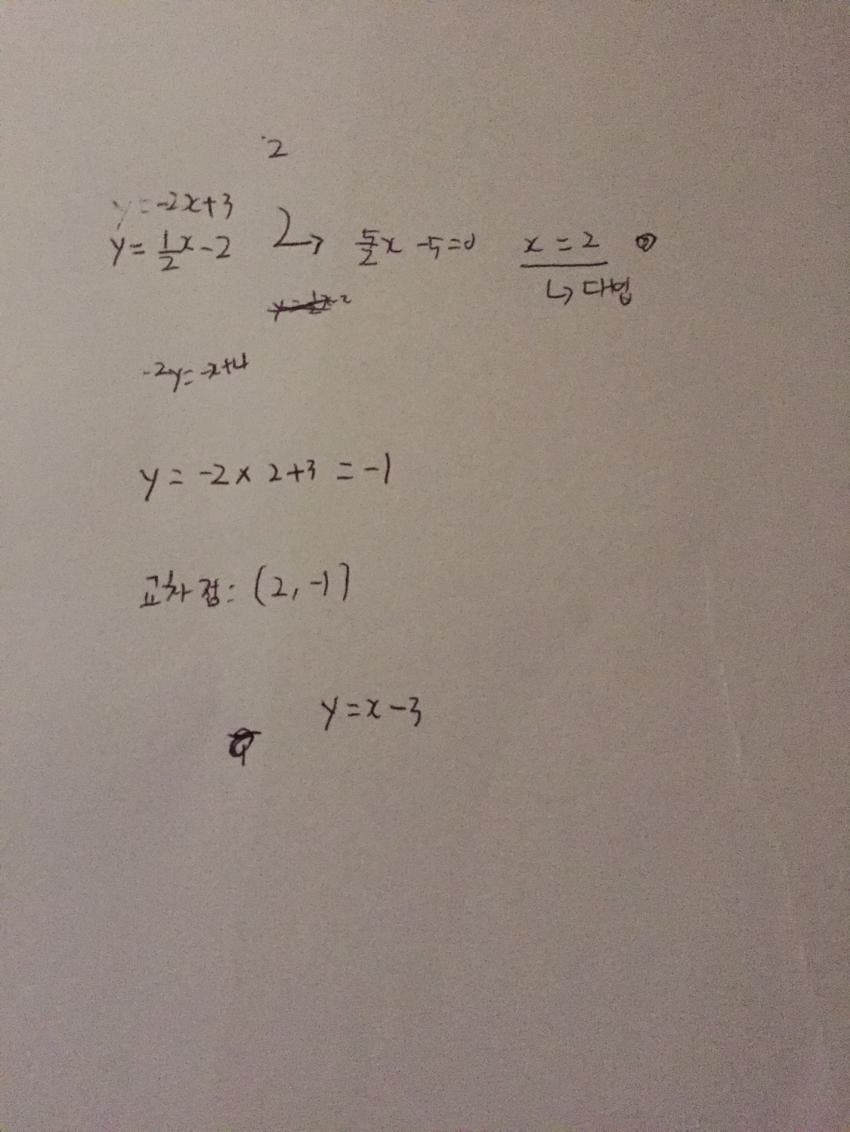 2
y=-2x+3
y=\frac{1}{2}x-2 → \frac{5}{2}x-5=0 x=2
↳ 대입
-2y=-x+4
y=-2×2+3=-1
교차점: (2,-1)
y=x-3